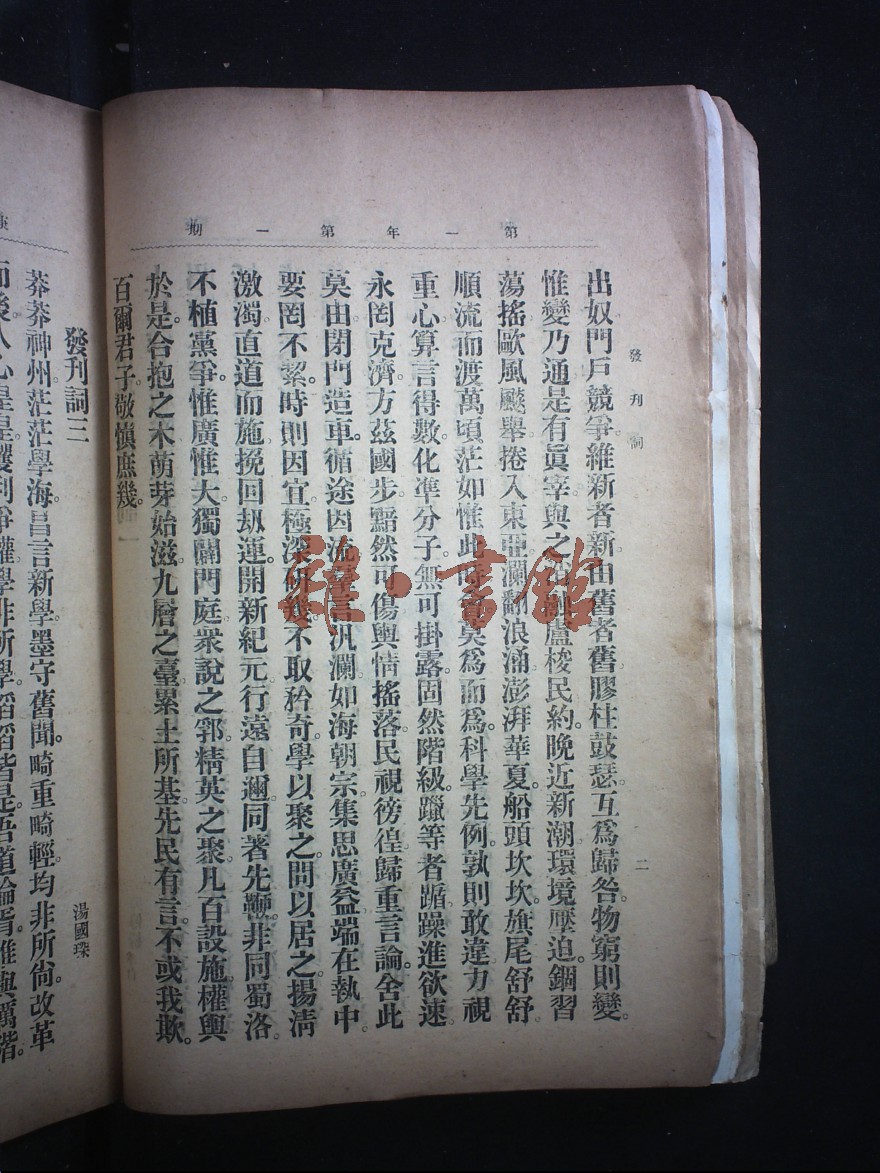 第一年第一期
發刊詞
二
出奴門戶競爭維新者新由舊者舊膠柱鼓瑟互爲歸咎物窮則變
惟變乃通是有眞宰與之盧梭民約晚近新潮環境壓迫錮習
蕩搖歐風飈舉捲入東亞瀾翻浪涌澎湃華夏船頭坎坎旗尾舒舒
順流而渡萬頃茫如惟此時莫爲而爲科學先例孰則敢違力視
重心算言得數化準分子無可掛露固然階級躐等者踣躁進欲速
永罔克濟方茲國步黯然可傷輿情搖落民視徬徨歸重言論舍此
莫由閉門造車循途因流言汎瀾如海朝宗集思廣益端在執中
要罔不挈時則因宜極深研幾不取矜奇學以聚之問以居之揚淸
激濁直道而施挽回劫運開新紀元行遠自邇同著先鞭非同蜀洛
不植黨爭惟廣惟大獨闢門庭衆說之郛精英之聚凡百設施權輿
於是合抱之木萌芽始滋九層之臺累土所基先民有言不或我欺
百爾君子敬愼庶幾
發刊詞三
湯國琛
莽莽神州茫茫學海昌言新學墨守舊聞畸重畸輕均非所尙改革
而後人心皇皇攘利爭權學非所學滔滔皆是吾道淪胥誰與厲階